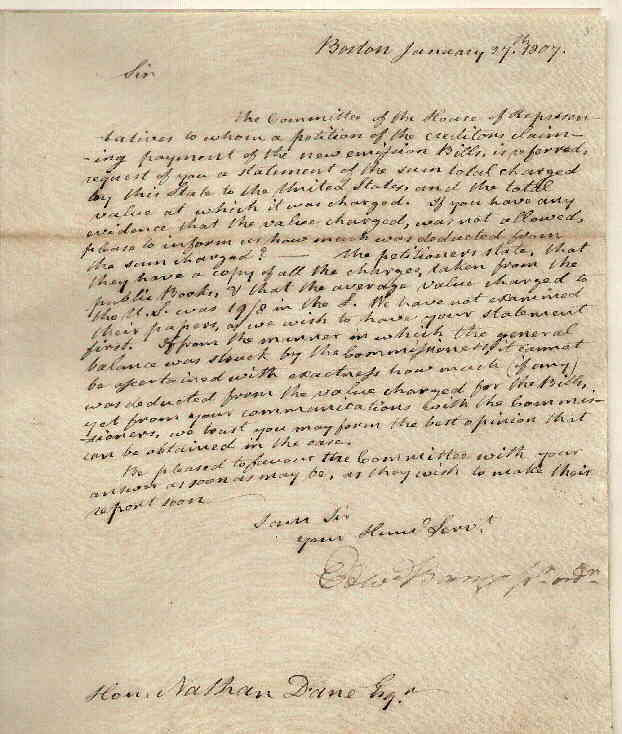 Boston January 27th 1807.
Sir
The Committee of the House of Represen-
-tatives to whom a petition of the creditors claim-
-ing payment of the new emission Bills, is referred,
request of you a statement of the sum total charged
by this State to the United States, and the total
value at which it was charged. If you have any
evidence that the value charged, was not allowed,
please to inform us how much was deducted from
the sum charged? — The petitioners state, that
they have a copy of all the charges, taken from the
public Books, & that the average value charged to
the U.S. was 19/8 in the £. We have not examined
their papers, as we wish to have your statement
first. If from the manner in which the general
balance was struck by the Commissioners it cannot
be ascertained with exactness how much (if any)
was deducted from the value charged for the Bills,
yet from your communications with the Commis-
sioners, we trust you may form the best opinion that
can be obtained in the case.
Be pleased to favour the Committee with your
answer as soon as may be, as they wish to make their
report soon
I am Sir
your Hume Servt
Edwd Bangs pr order
Hon. Nathan Dane Esqr